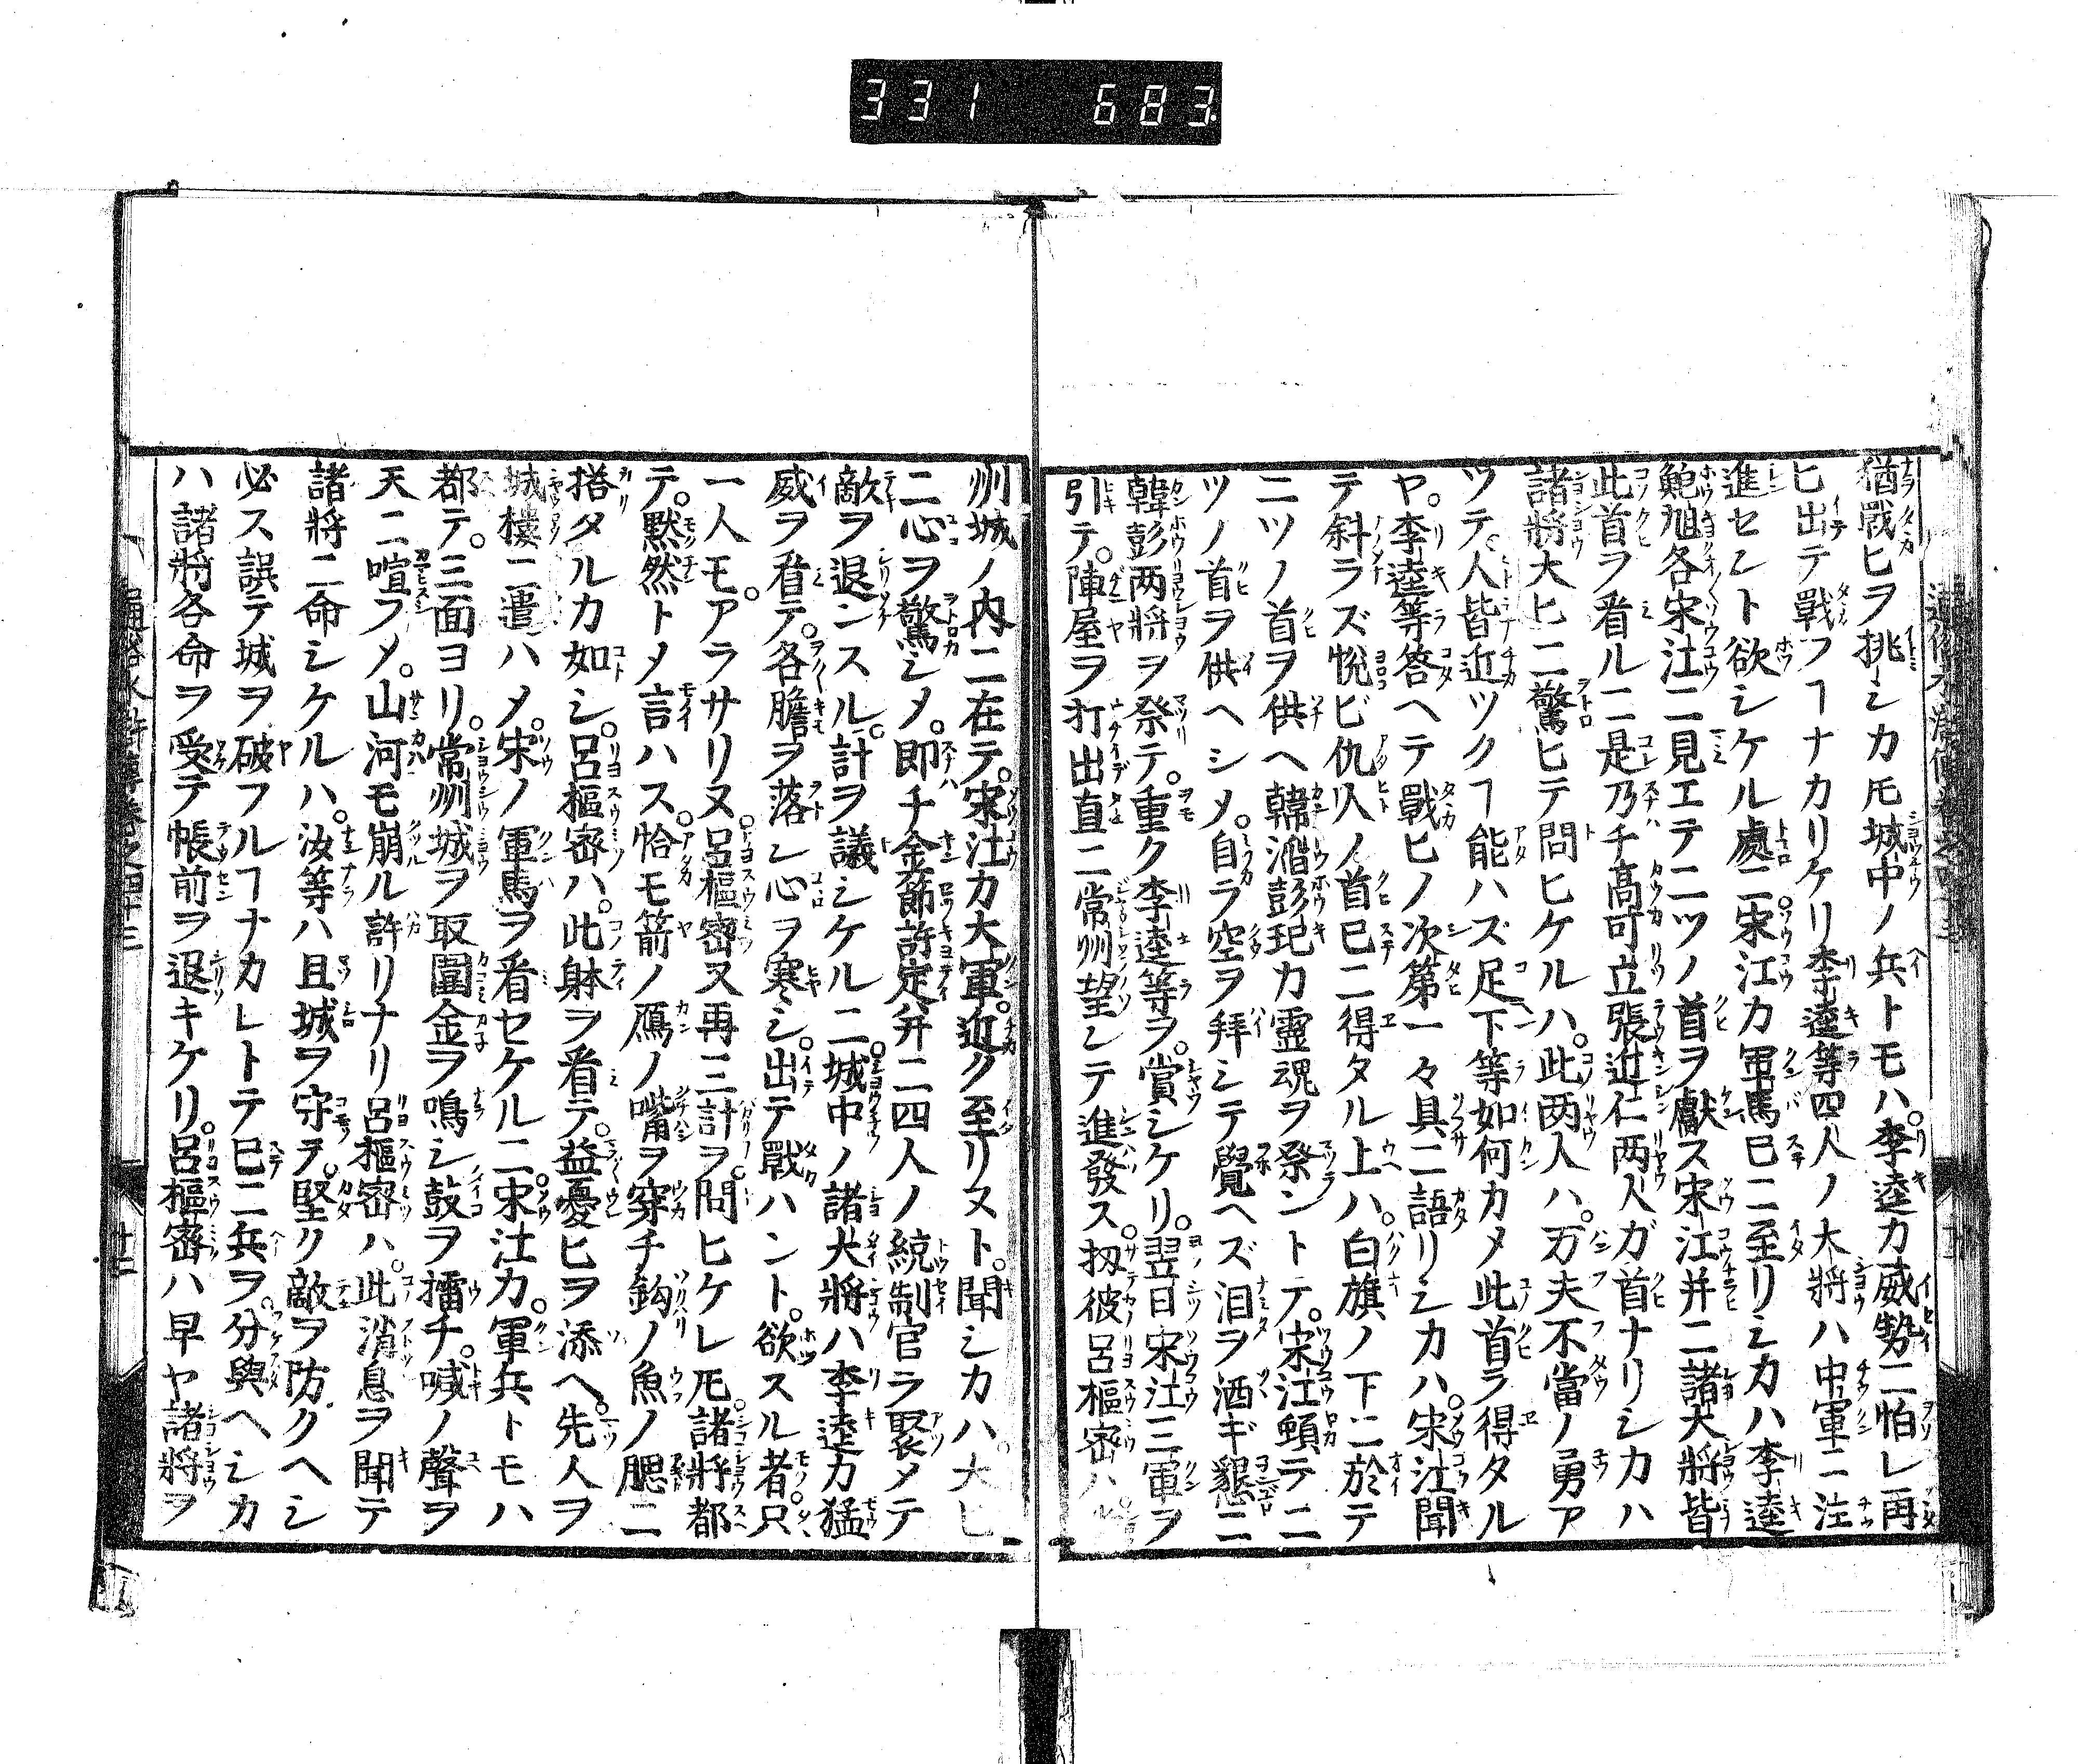 331 683
猶戰ヒヲ挑シカ𪜈城中ノ兵トモハ。李逵カ威勢ニ怕レ再
ヒ出テ戰フヿナカリケリ李逵等四人ノ大將ハ中軍ニ注
進セント欲シケル處ニ宋江カ軍馬已ニ至リシカハ李逵
鮑旭各宋江ニ見エテ二ツノ首ヲ獻ス宋江并ニ諸大將皆
此首ヲ看ルニ是乃チ高可立張近仁两人ガ首ナリシカハ
諸將大ヒニ驚ヒテ問ヒケルハ。此两人ハ。万夫不當ノ勇ア
ツテ。人皆近ツクヿ能ハズ足下等如何カメ此首ヲ得タル
ヤ。李逵等答ヘテ戰ヒノ次第一々具ニ語リシカハ。宋江聞
テ斜ラズ悅ビ仇人ノ首已ニ得タル上ハ。白旗ノ下ニ於テ
二ツノ首ヲ供ヘ韓滔彭玘カ靈魂ヲ祭ントテ。宋江頓テ二
ツノ首ヲ供ヘシメ。自ラ空ヲ拜シテ覺ヘズ泪ヲ洒ギ懇ニ
韓彭两將ヲ祭テ。重ク李逵等ヲ。賞シケリ。翌日宋江三軍ヲ
引テ。陣屋ヲ打出直ニ常州望シテ進發ス。扨彼呂樞密ハ
州城ノ内ニ在テ。宋江カ大軍。近ク至リヌト。聞シカハ。大ヒ
ニ心ヲ驚シメ。即チ金節許定并ニ四人ノ統制官ラ聚メテ
敵ヲ退ンスル。計ヲ議シケルニ。城中ノ諸大將ハ李逵カ猛
威ヲ看テ。各膽ヲ落シ心ヲ寒シ。出テ戰ハント。欲スル者。只
一人モ。アラサリヌ。呂樞密又再三計ヲ。問ヒケレ𪜈。諸將都
テ。默然トメ言ハス。恰モ箭ノ鴈ノ嘴ヲ穿チ鈎ノ魚ノ腮ニ
搭タルカ如シ。呂樞密ハ。此躰ヲ看テ。益憂ヒヲ添ヘ。先人ヲ
城樓ニ遣ハメ。宋ノ軍馬ヲ看セケルニ。宋江カ。軍兵トモハ
都テ。三面ヨリ。常州城ヲ取圍金ヲ鳴シ鼓ヲ擂チ。喊ノ聲ヲ
天ニ喧フメ。山河モ崩ル許リナリ呂樞密ハ。此消息ヲ聞テ
諸將ニ命シケルハ。汝等ハ且城ヲ守ヲ。堅ク敵ヲ防クヘシ
必ス誤テ城ヲ破フルヿナカレトテ已ニ兵ヲ。分與ヘシカ
ハ諸將各命ヲ受テ帳前ヲ退キケリ。呂樞密ハ早ヤ諸將ヲ